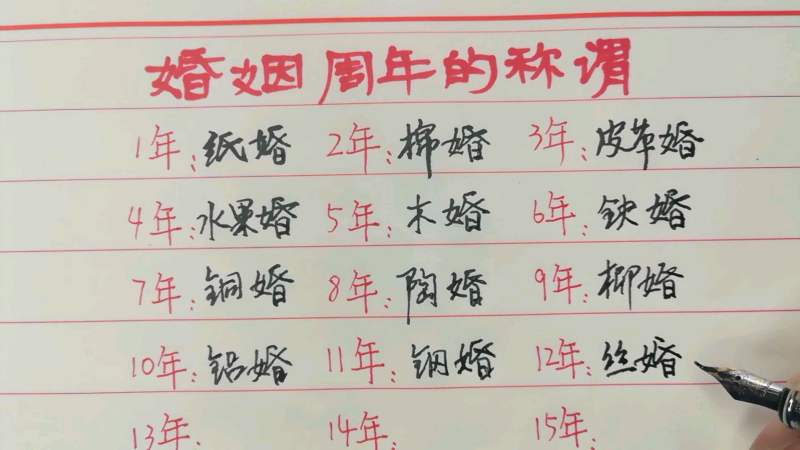 婚姻周年的称谓
1年:纸婚 2年:棉婚 3年:皮革婚
4年:水果婚 5年:木婚 6年:铁婚
7年:铜婚 8年:陶婚 9年:柳婚
10年:铝婚 11年:钢婚 12年:丝婚
13年: 14年: 15年: